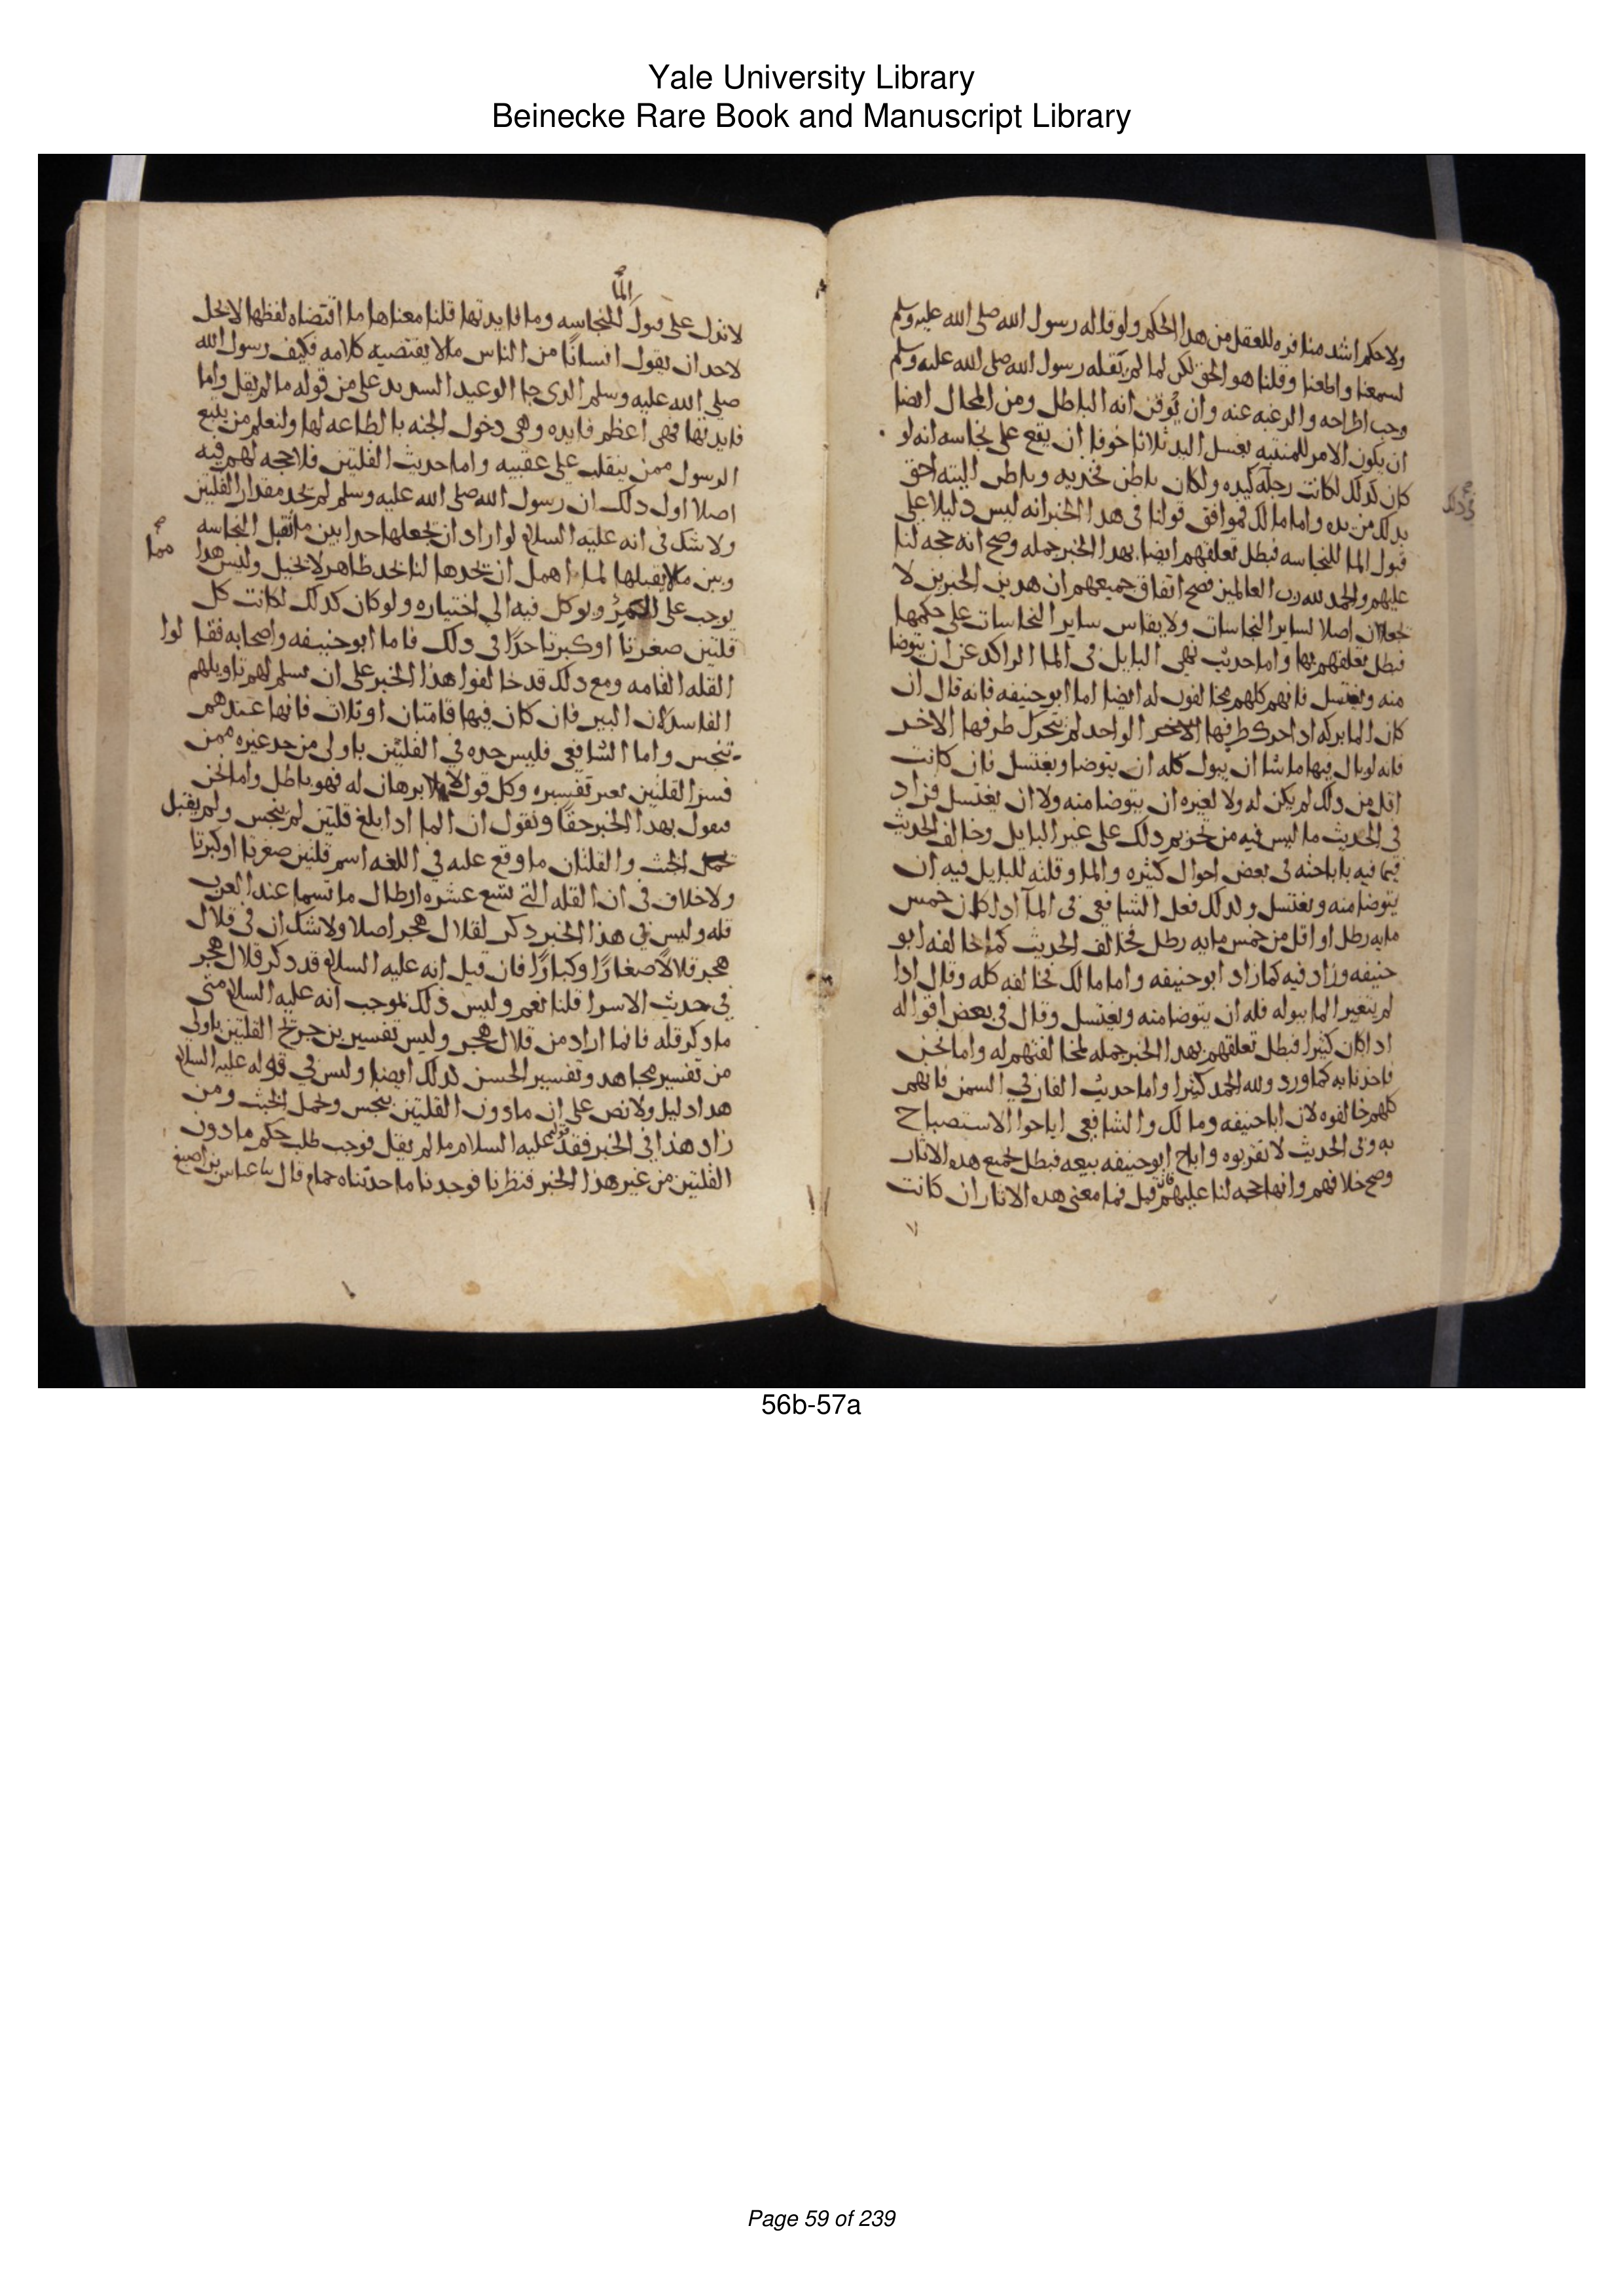 Yale University Library
Beinecke Rare Book and Manuscript Library
ولا حكم اشد منافره للعقل من هدا الحكم ولو قاله رسول الله صلى الله عليه وسلم
لسمعنا واطعنا وقلنا هو الحق لكن لما لم يقله رسول الله صلى الله عليه وسلم
وجب اطراحه والرغبه عنه وان نوقن انه الباطل ومن المحال ايضا
ان يكون الامر للمنتبه بغسل اليد ثلاثا خوفا ان يقع على نجاسه انه لو
كان كدلك لكانت رجله كيده ولكان باطن فخديه وباطن اليته احق
بدلك من يده واما مالك فموافق قولنا فى هدا الخبر انه ليس دليلا على
قبول الما للنجاسه فبطل تعلقهم ايضا بهدا الخبر جمله وصح انه حجه لنا
عليهم والحمد لله رب العالمين فصح اتفاق جميعهم ان هدين الخبرين لا
يجعلان اصلا لساير النجاسات ولا يقاس ساير النجاسات على حكمها
فبطل تعلقهم بها واما حديث نهى البايل فى الما الراكد عن ان يتوضا
منه ويغتسل فانهم كلهم مخالفون له ايضا اما ابو حنيفه فانه قال ان
كان الما بركه ادا حرك طرفها الواحد لم يتحرك طرفها الاخر
فانه لو بال فيها ما شا ان يبول كله ان يتوضا ويغتسل فان كانت
اقل من دلك لم يكن له ولا لغيره ان يتوضا منه ولا ان يغتسل فزاد
فى الحديث ما ليس فيه من تحريم دلك على غير البايل وخالف الحديث
فيما فيه باباحته فى بعض احوال كثيره والما وقلته للبايل فيه ان
يتوضا منه ويغتسل ولدلك فعل الشافعي فى المآ ادا كان خمس
مايه رطل او اقل من خمس مايه رطل فخالف الحديث كما خالفه ابو
حنيفه وزاد فيه كما زاد ابو حنيفه واما مالك فخالفه كله وقال ادا
لم يتغير الما ببوله فله ان يتوضا منه ويغتسل وقال في بعض اقواله
ادا كان كثيرا فبطل تعلقهم بهدا الخبر جمله لمخالفتهم له واما نحن
فاخذنا به كما ورد ولله الحمد كثيرا واما حديث الفار في السمن فانهم
كلهم خالفوه لان ابا حنيفه ومالك والشافعي اباحوا الاستصباح
به وفى الحديث لا تقربوه واباح ابو حنيفه بيعه فبطل جميع هده الاثار
وصح خلافهم وانها حجه لنا عليهم فان قيل فما معنى هده الاثار ان كانت
لا تدل على قبول الما للنجاسه وما فايدتها قلنا معناها ما اقتضاه لفظها لا يحل
لاحد ان يقول انسانًا من الناس ما لا يقتضيه كلامه فكيف رسول الله
صلى الله عليه وسلم الدى جا الوعيد الشديد على من قوله ما لم يقل واما
فايدتها فهى اعظم فايده وهى دخول الجنه بالطاعه لها ولنعلم من يتبع
الرسول ممن ينقلب على عقبيه واما حديث القلتين فلا حجه لهم فيه
اصلا اول دلك ان رسول الله صلى الله عليه وسلم لم يحد مقدار القلتين
ولا شك فى انه عليه السلام لو اراد ان يجعلها حدا بين ما يقبل النجاسه
وبين ما لا يقبلها لما اهمل ان يحدها لنا بحد ظاهر لا يحيل وليس هدا مما
يوجب على المر ويوكل فيه الى اختياره ولو كان كدلك لكانت كل
قلتين صغرتا او كبرتا حدًا فى دلك فاما ابو حنيفه واصحابه فقالوا
القله القامه ومع دلك قد خالفوا هذا الخبر على ان نسلم لهم تاويلهم
الفاسد لان البير فان كان فيها قامتان او ثلاث فانها عندهم
تنجس واما الشافعي فليس حده في القلتين باولى من حد غيره ممن
فسر القلتين بغير تفسيره وكل قول لا برهان له فهو باطل واما نحن
فنقول بهدا الخبر حقًا ونقول ان الما ادا بلغ قلتين لم ينجس ولم يقبل
الخبث والقلتان ما وقع عليه في اللغه اسم قلتين صغرتا او كبرتا
ولا خلاف فى ان القله التي تسع عشره ارطال ما تسما عند العرب
قله وليس في هذا الخبر دكر لقلال هجر اصلا ولا شك ان فى قلال
هجر قلالاً صغارًا وكبارًا فان قيل انه عليه السلام قد دكر قلال هجر
في حديث الاسرا قلنا نعم وليس ذلك بموجب انه عليه السلام متى
ما دكر قله فانما اراد من قلال هجر وليس تفسير بن جريج القلتين باولى
من تفسير مجاهد وتفسير الحسن كدلك ايضا وليس في قوله عليه السلام
هدا دليل ولا نص على ان ما دون القلتين ينجس ويحمل الخبث ومن
زاد هذا في الخبر فقد قوله عليه السلام ما لم يقل فوجب طلب حكم ما دون
القلتين من غير هذا الخبر فنظرنا فوجدنا ما حدثناه حمام قال ثنا عباس بن اصبغ
56b-57a
Page 59 of 239